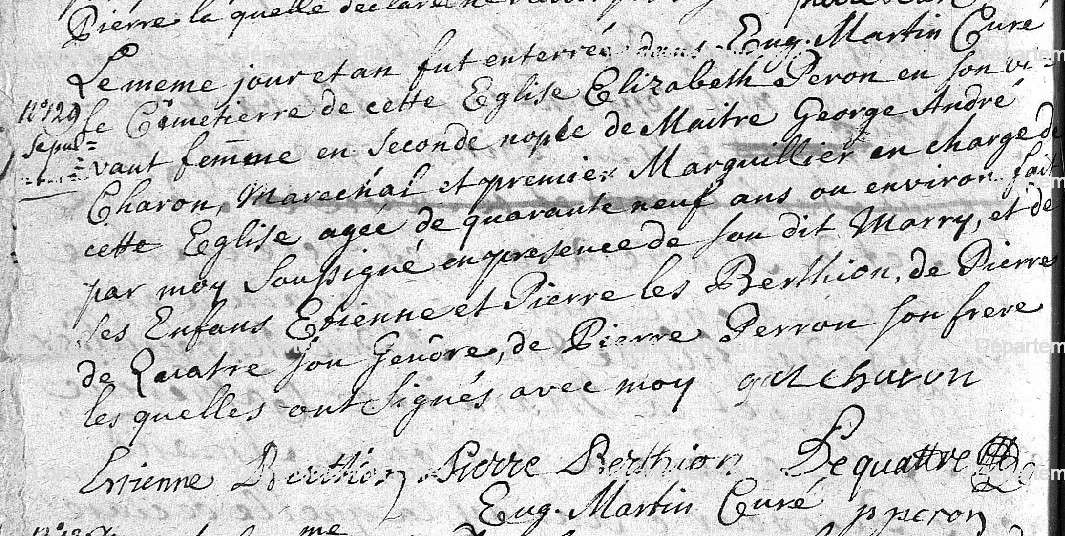 Pierre la quelle declare
Eug. Martin Curé
Le meme jour et an fut enterrée dans
N° 129
Sepul=
le Cimetierre de cette Eglise Elizabeth Peron en son vi=
vant femme en seconde nopce de Maitre George André
Charon, Marechal et premier Marguillier en charge de
cette Eglise agée de quarante neuf ans ou environ fait
par moy soussigné en presence de son dit Marry, et de
ses Enfans Etienne et Pierre les Berthion, de Pierre
de Quatre son Gendre, de Pierre Perron son frere
les quelles ont signés avec moy charon
Etienne Berthion Pierre Berthion Dequattre
Eug. Martin Curé p peron